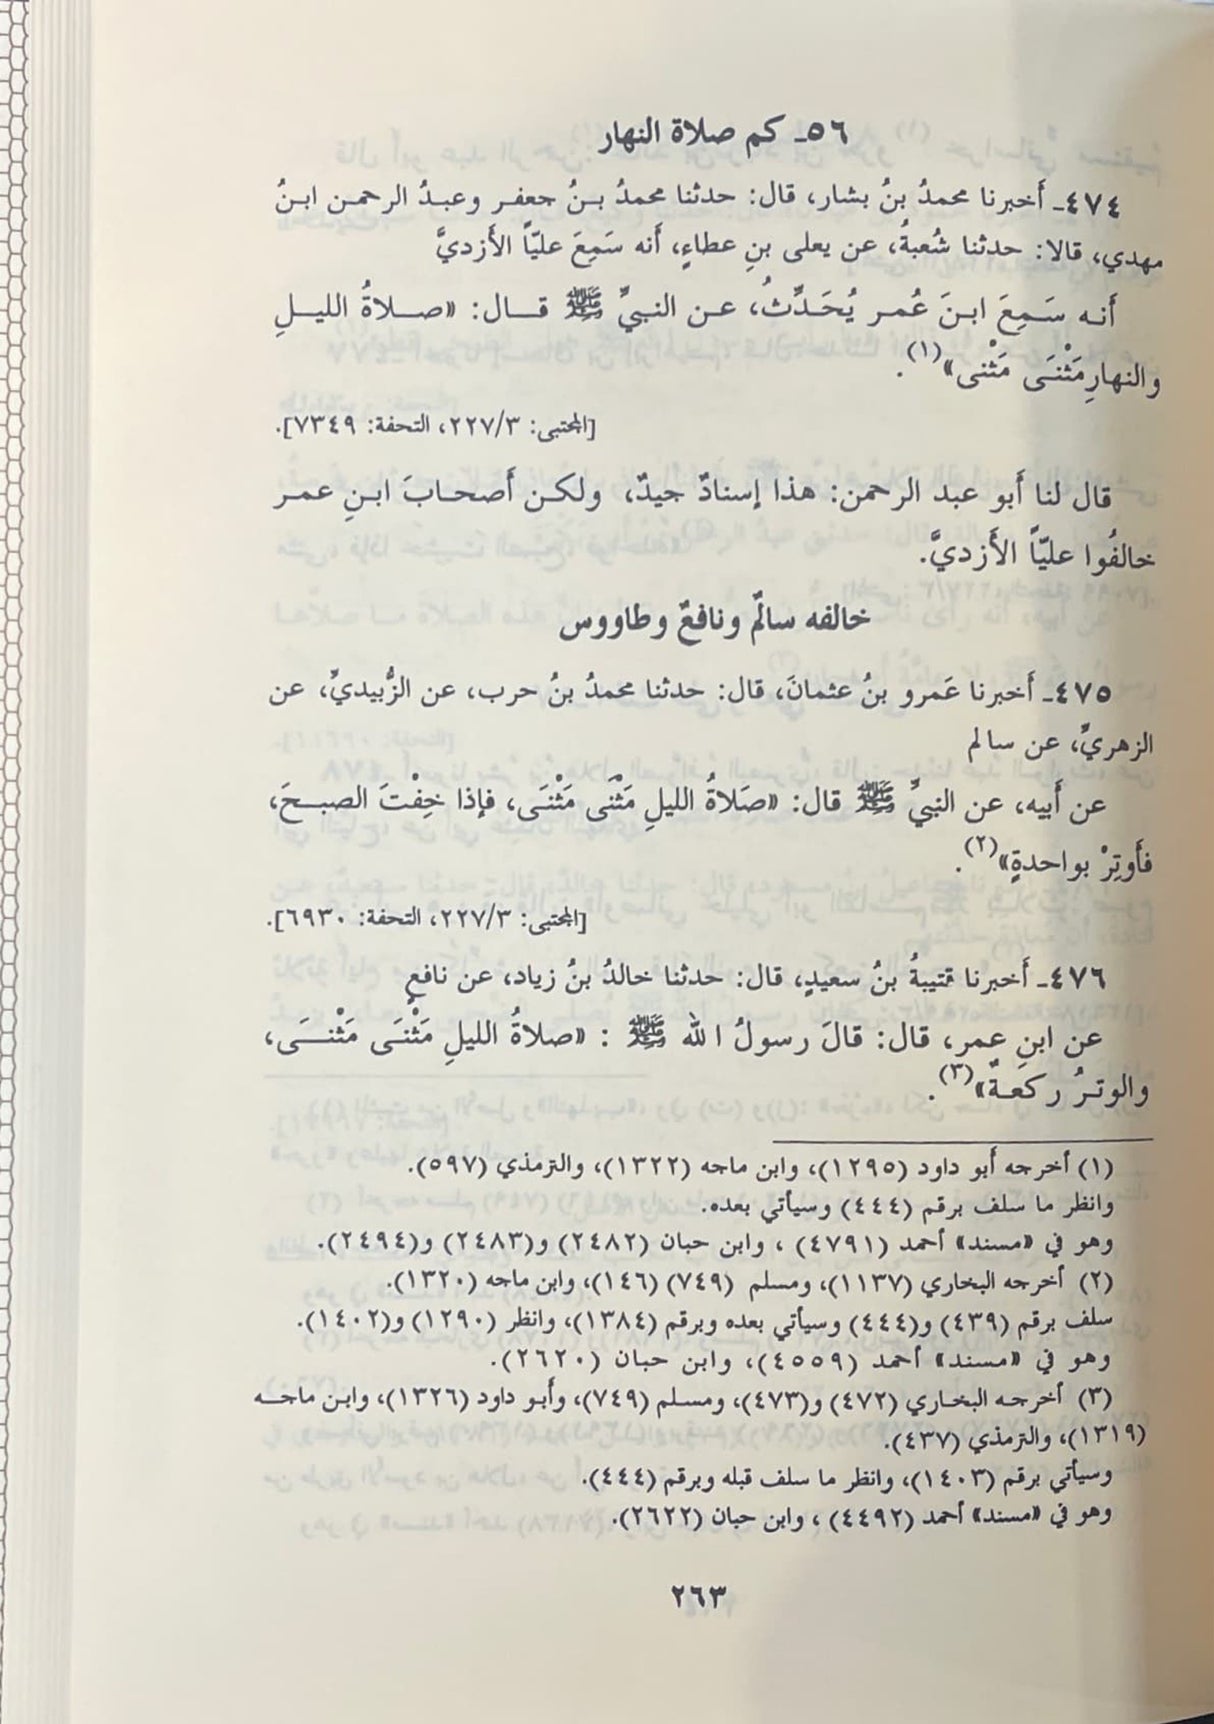 ٥٦ـ كم صلاة النهار
٤٧٤ـ أَخبرنا محمدُ بنُ بشار، قال: حدثنا محمدُ بـنُ جعفـر وعبـدُ الرحمـن ابـنُ
مهدي، قالا: حدثنا شُعبةُ، عن يعلى بنِ عطاءٍ، أَنه سَمِعَ عليّاً الأَزديَّ
أَنـه سَـمِعَ ابـنَ عُمـر يُحَـدِّثُ، عـن النبيِّ ﷺ قـال: «صـلاةُ الليـلِ
والنهارِ مَثْنَـى مَثْنى»(١).
[المجتبى: ٢٢٧/٣، التحفة: ٧٣٤٩].
قال لنا أَبو عبد الرحمن: هذا إسنادٌ جيدٌ، ولكـن أَصحـابَ ابـنِ عمـر
خالفُوا عليّاً الأَزديَّ.
خالفه سالمٌ ونافعٌ وطاووس
٤٧٥ـ أَخبرنا عَمرو بنُ عثمانَ، قال: حدثنا محمدُ بنُ حرب، عن الزُّبيديِّ، عن
الزهريِّ، عن سالم
عن أَبيه، عن النبيِّ ﷺ قال: «صَلاةُ الليلِ مَثْنى مَثْنَـى، فإذا خِفْتَ الصبـحَ،
فأَوتِرْ بواحدةٍ»(٢).
[المجتبى: ٢٢٧/٣، التحفة: ٦٩٣٠].
٤٧٦ـ أَخبرنا قتيبةُ بنُ سعيدٍ، قال: حدثنا خالدُ بنُ زياد، عن نافعٍ
عن ابنِ عمر، قال: قالَ رسولُ الله ﷺ : «صلاةُ الليلِ مَثْنَـى مَثْنـَـى،
والوتـرُ ركعـةٌ»(٣).
(١) أخرجه أَبو داود (١٢٩٥)، وابن ماجه (١٣٢٢)، والترمذي (٥٩٧).
وانظر ما سلف برقم (٤٤٤) وسيأتي بعده.
وهو في «مسند» أحمد (٤٧٩١) ، وابن حبان (٢٤٨٢) و(٢٤٨٣) و(٢٤٩٤).
(٢) أخرجه البخاري (١١٣٧)، ومسلم (٧٤٩) (١٤٦)، وابن ماجه (١٣٢٠).
سلف برقم (٤٣٩) و(٤٤٤) وسيأتي بعده وبرقم (١٣٨٤)، وانظر (١٢٩٠) و(١٤٠٢).
وهو في «مسند» أحمد (٤٥٥٩)، وابن حبان (٢٦٢٠).
(٣) أخرجـه البخـاري (٤٧٢) و(٤٧٣)، ومسلم (٧٤٩)، وأَبـو داود (١٣٢٦)، وابـن ماجـه
(١٣١٩)، والترمذي (٤٣٧).
وسيأتي برقم (١٤٠٣)، وانظر ما سلف قبله وبرقم (٤٤٤).
وهو في «مسند» أحمد (٤٤٩٢) ، وابن حبان (٢٦٢٢).
٢٦٣